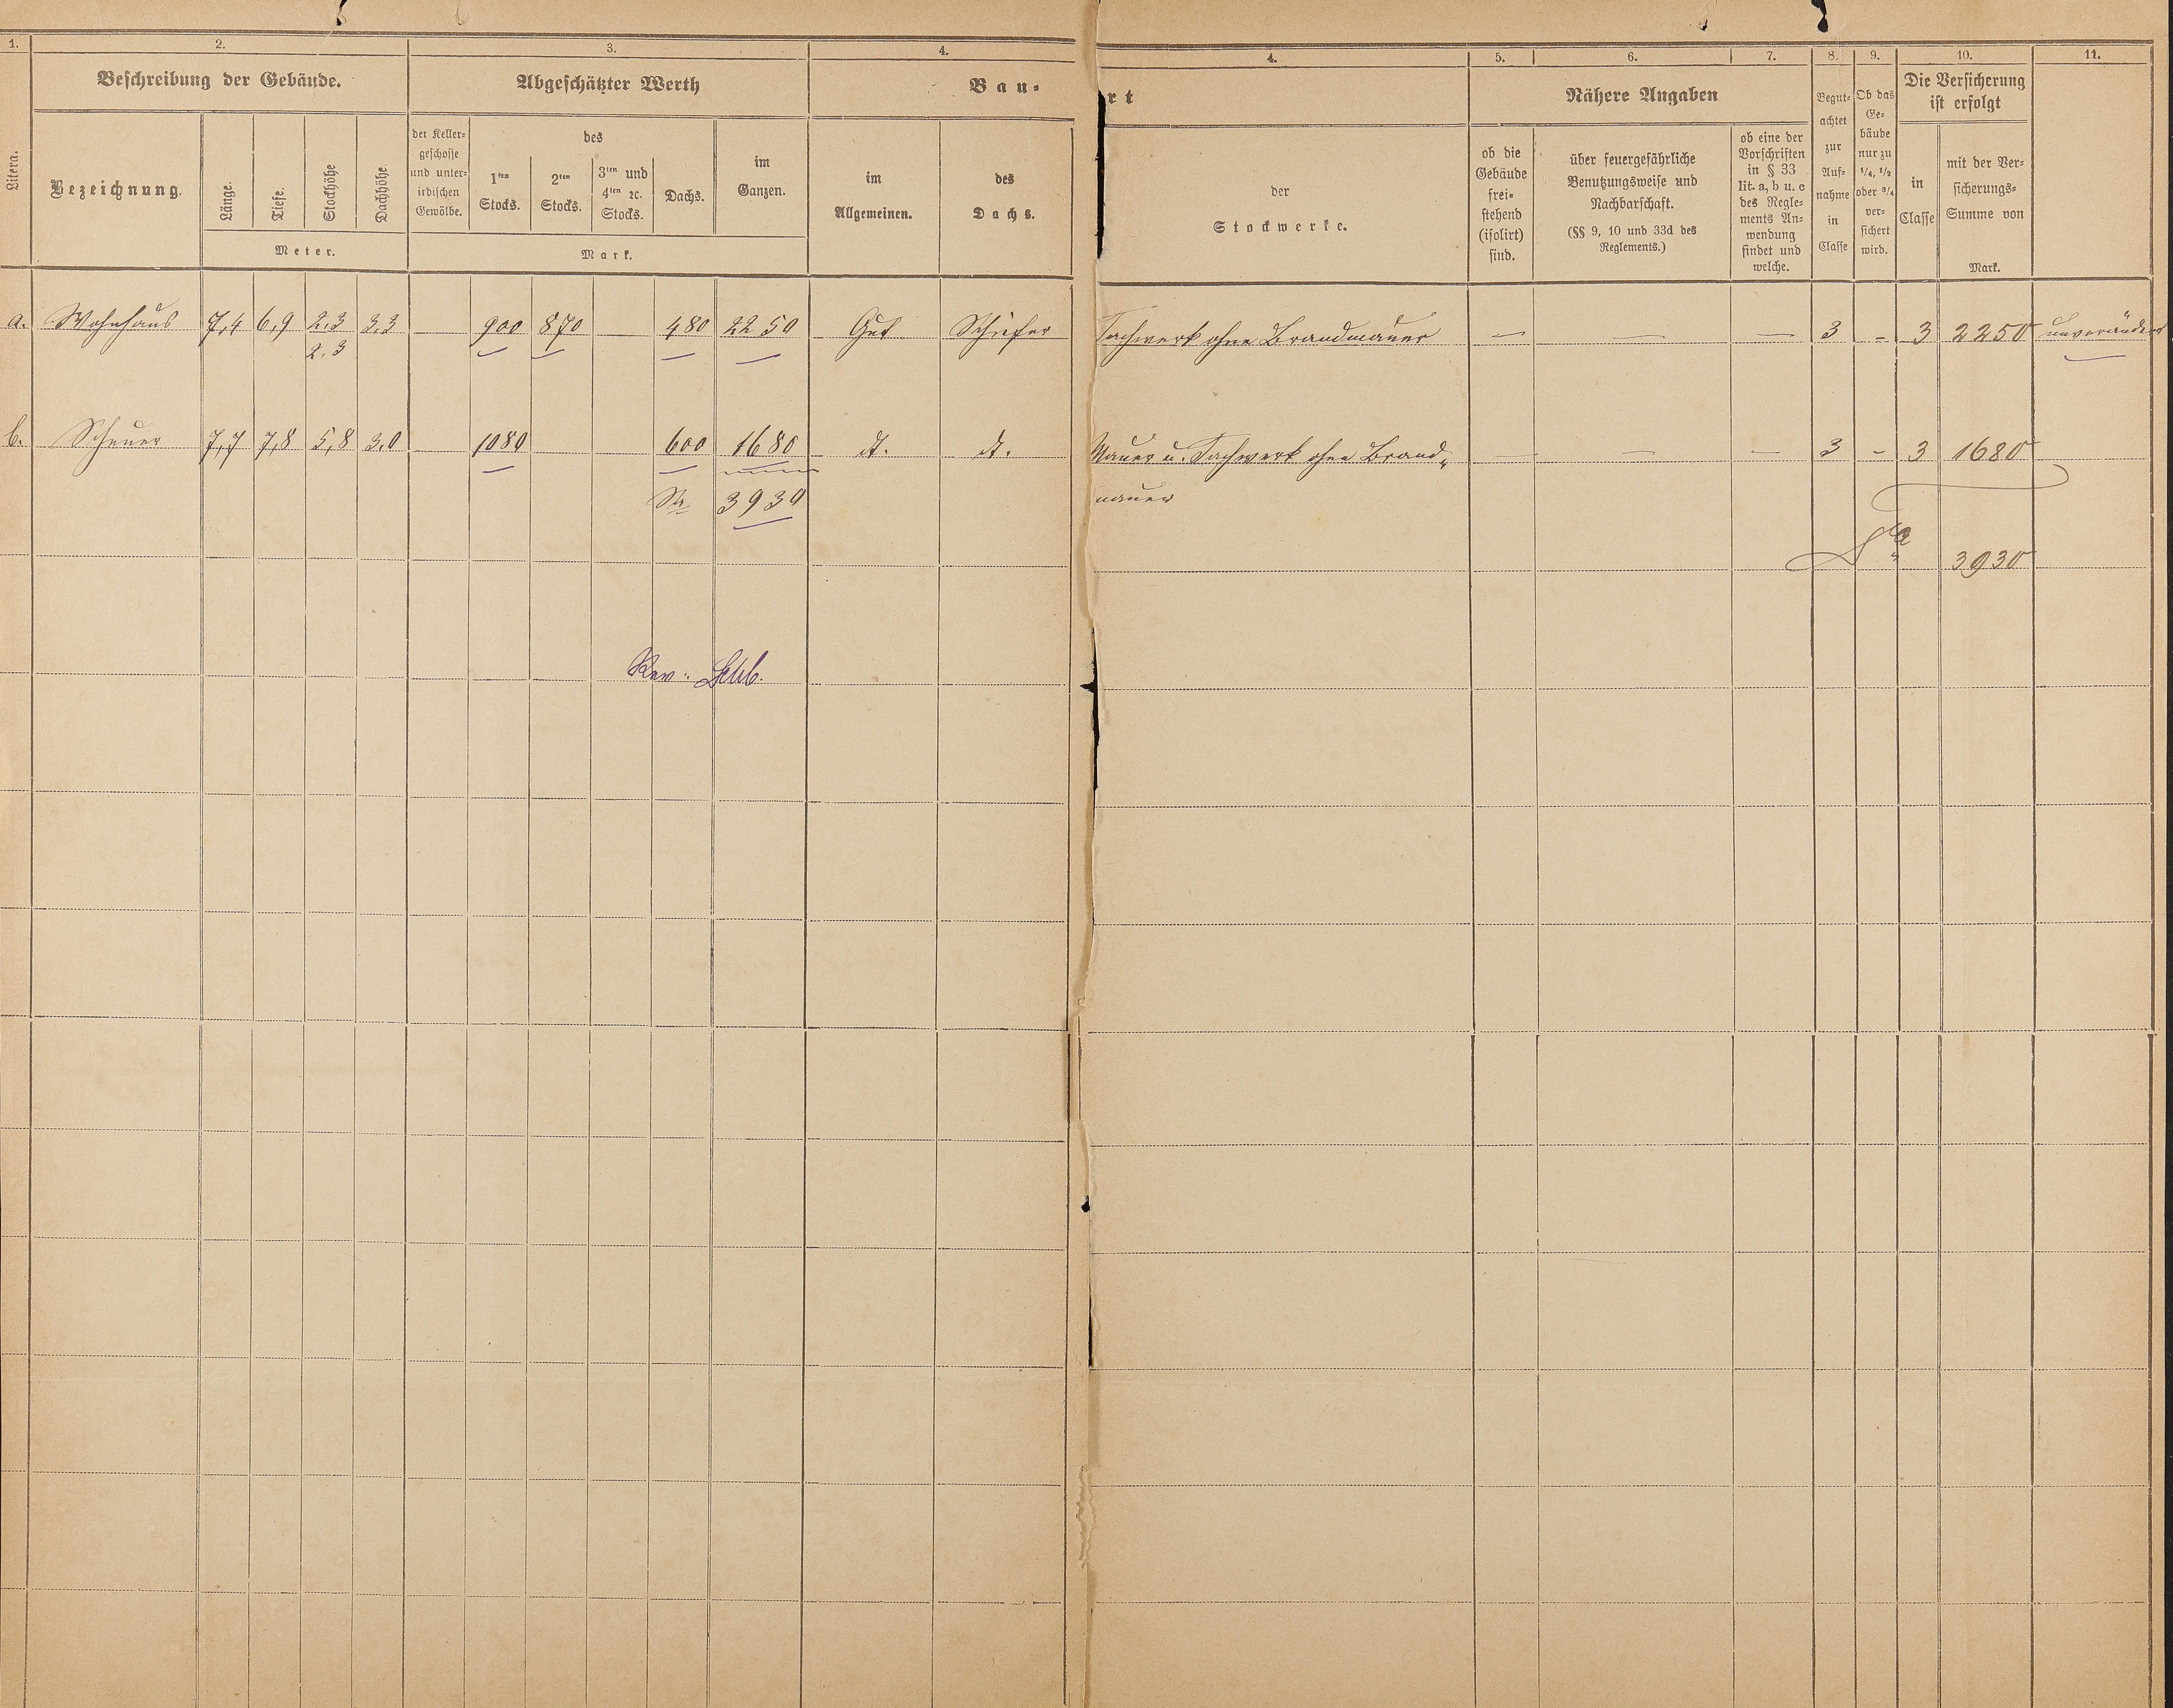 1. 2. 3. 4. 4. 5. 6. 7. 8. 9. 10. 11.
Beschreibung der Gebäude. Abgeschätzter Werth Bau- rt Nähere Angaben
Die Versicherung
ist erfolgt
Litera.
Bezeichnung.
Länge.
Tiefe.
Stockhöhe
Dachhöhe
Meter.
der Keller-
geschosse
und unter-
irdischen
Gewölbe.
des
1ten
Stocks.
2ten
Stocks.
3ten und
4ten ꝛc.
Stocks.
Dachs.
im
Ganzen.
Mark.
im
Allgemeinen.
des
Dachs.
der
Stockwerke.
ob die
Gebäude
frei-
stehend
(isolirt)
sind.
über feuergefährliche
Benutzungsweise und
Nachbarschaft.
(§§ 9, 10 und 33d des
Reglements.)
ob eine der
Vorschriften
in § 33
lit. a, b u. c
des Regle-
ments An-
wendung
findet und
welche.
Begut-
achtet
zur
Auf-
nahme
in
Classe
Ob das
Ge-
bäude
nur zu
1/4, 1/2
oder 3/4
ver-
sichert
wird.
in
Classe
mit der Ver-
sicherungs-
Summe von
Mark.
a. Wohnhaus 7,4 6,9 2,3 3,3 — 900 870 — 480 2250 Gut Schiefer Fachwerk ohne Brandmauer — — — 3 - 3 2250 unverändert
2,3
b. Scheuer 7,7 7,8 5,8 3,0 1080 600 1680 dt. dt. Mauer u. Fachwerk ohne Brand-
mauer
— — — 3 - 3 1680
Sa 3930
Sa 3930
Rev.